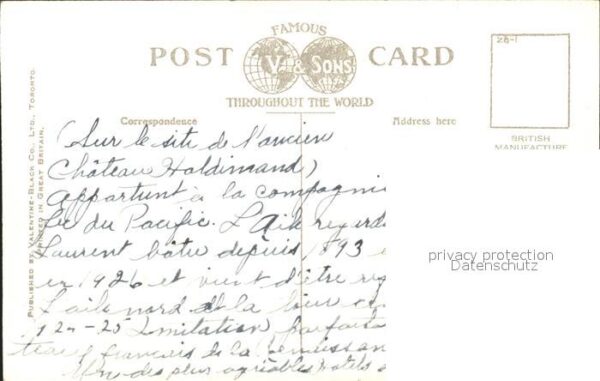 FAMOUS
POST CARD
V. & SONS
THROUGHOUT THE WORLD
28-1
Correspondence
Address here
BRITISH
MANUFACTURE
PUBLISHED BY VALENTINE-BLACK CO., LTD., TORONTO.
PRINTED IN GREAT BRITAIN.
(Sur le site de l'ancien
Château Haldimand)
appartient à la compagni
du Pacific. L'Aile regard
Laurent bâtie depuis 1893
en 1926 et vient d'être
L'aile nord et la tour
124-25 Imitation parfait
français de la Renaissan
Un des plus agréables hotels
privacy protection
Datenschutz